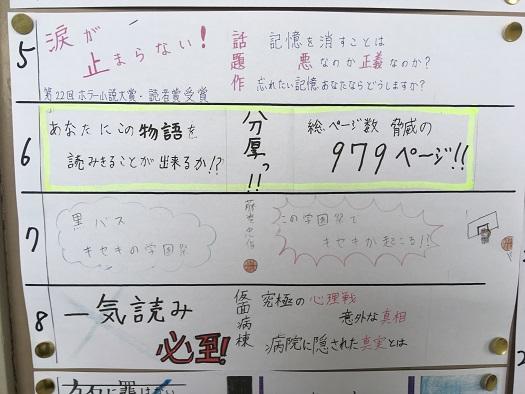 5
涙が
止まらない!
第22回 ホラー小説大賞・読者賞 受賞
話題作
記憶を消すことは
悪なのか正義なのか?
忘れたい記憶あなたならどうしますか?
6
あなたにこの物語を
読みきることが出来るか!?
分厚っ!!
総ページ数 脅威の
979ページ!!
7
黒バス
キセキの学園祭
藤巻忠俊
この学園祭で
キセキが起こる!!
8
一気読み
必至!
仮面病棟
究極の心理戦
意外な真相
病院に隠された真実とは